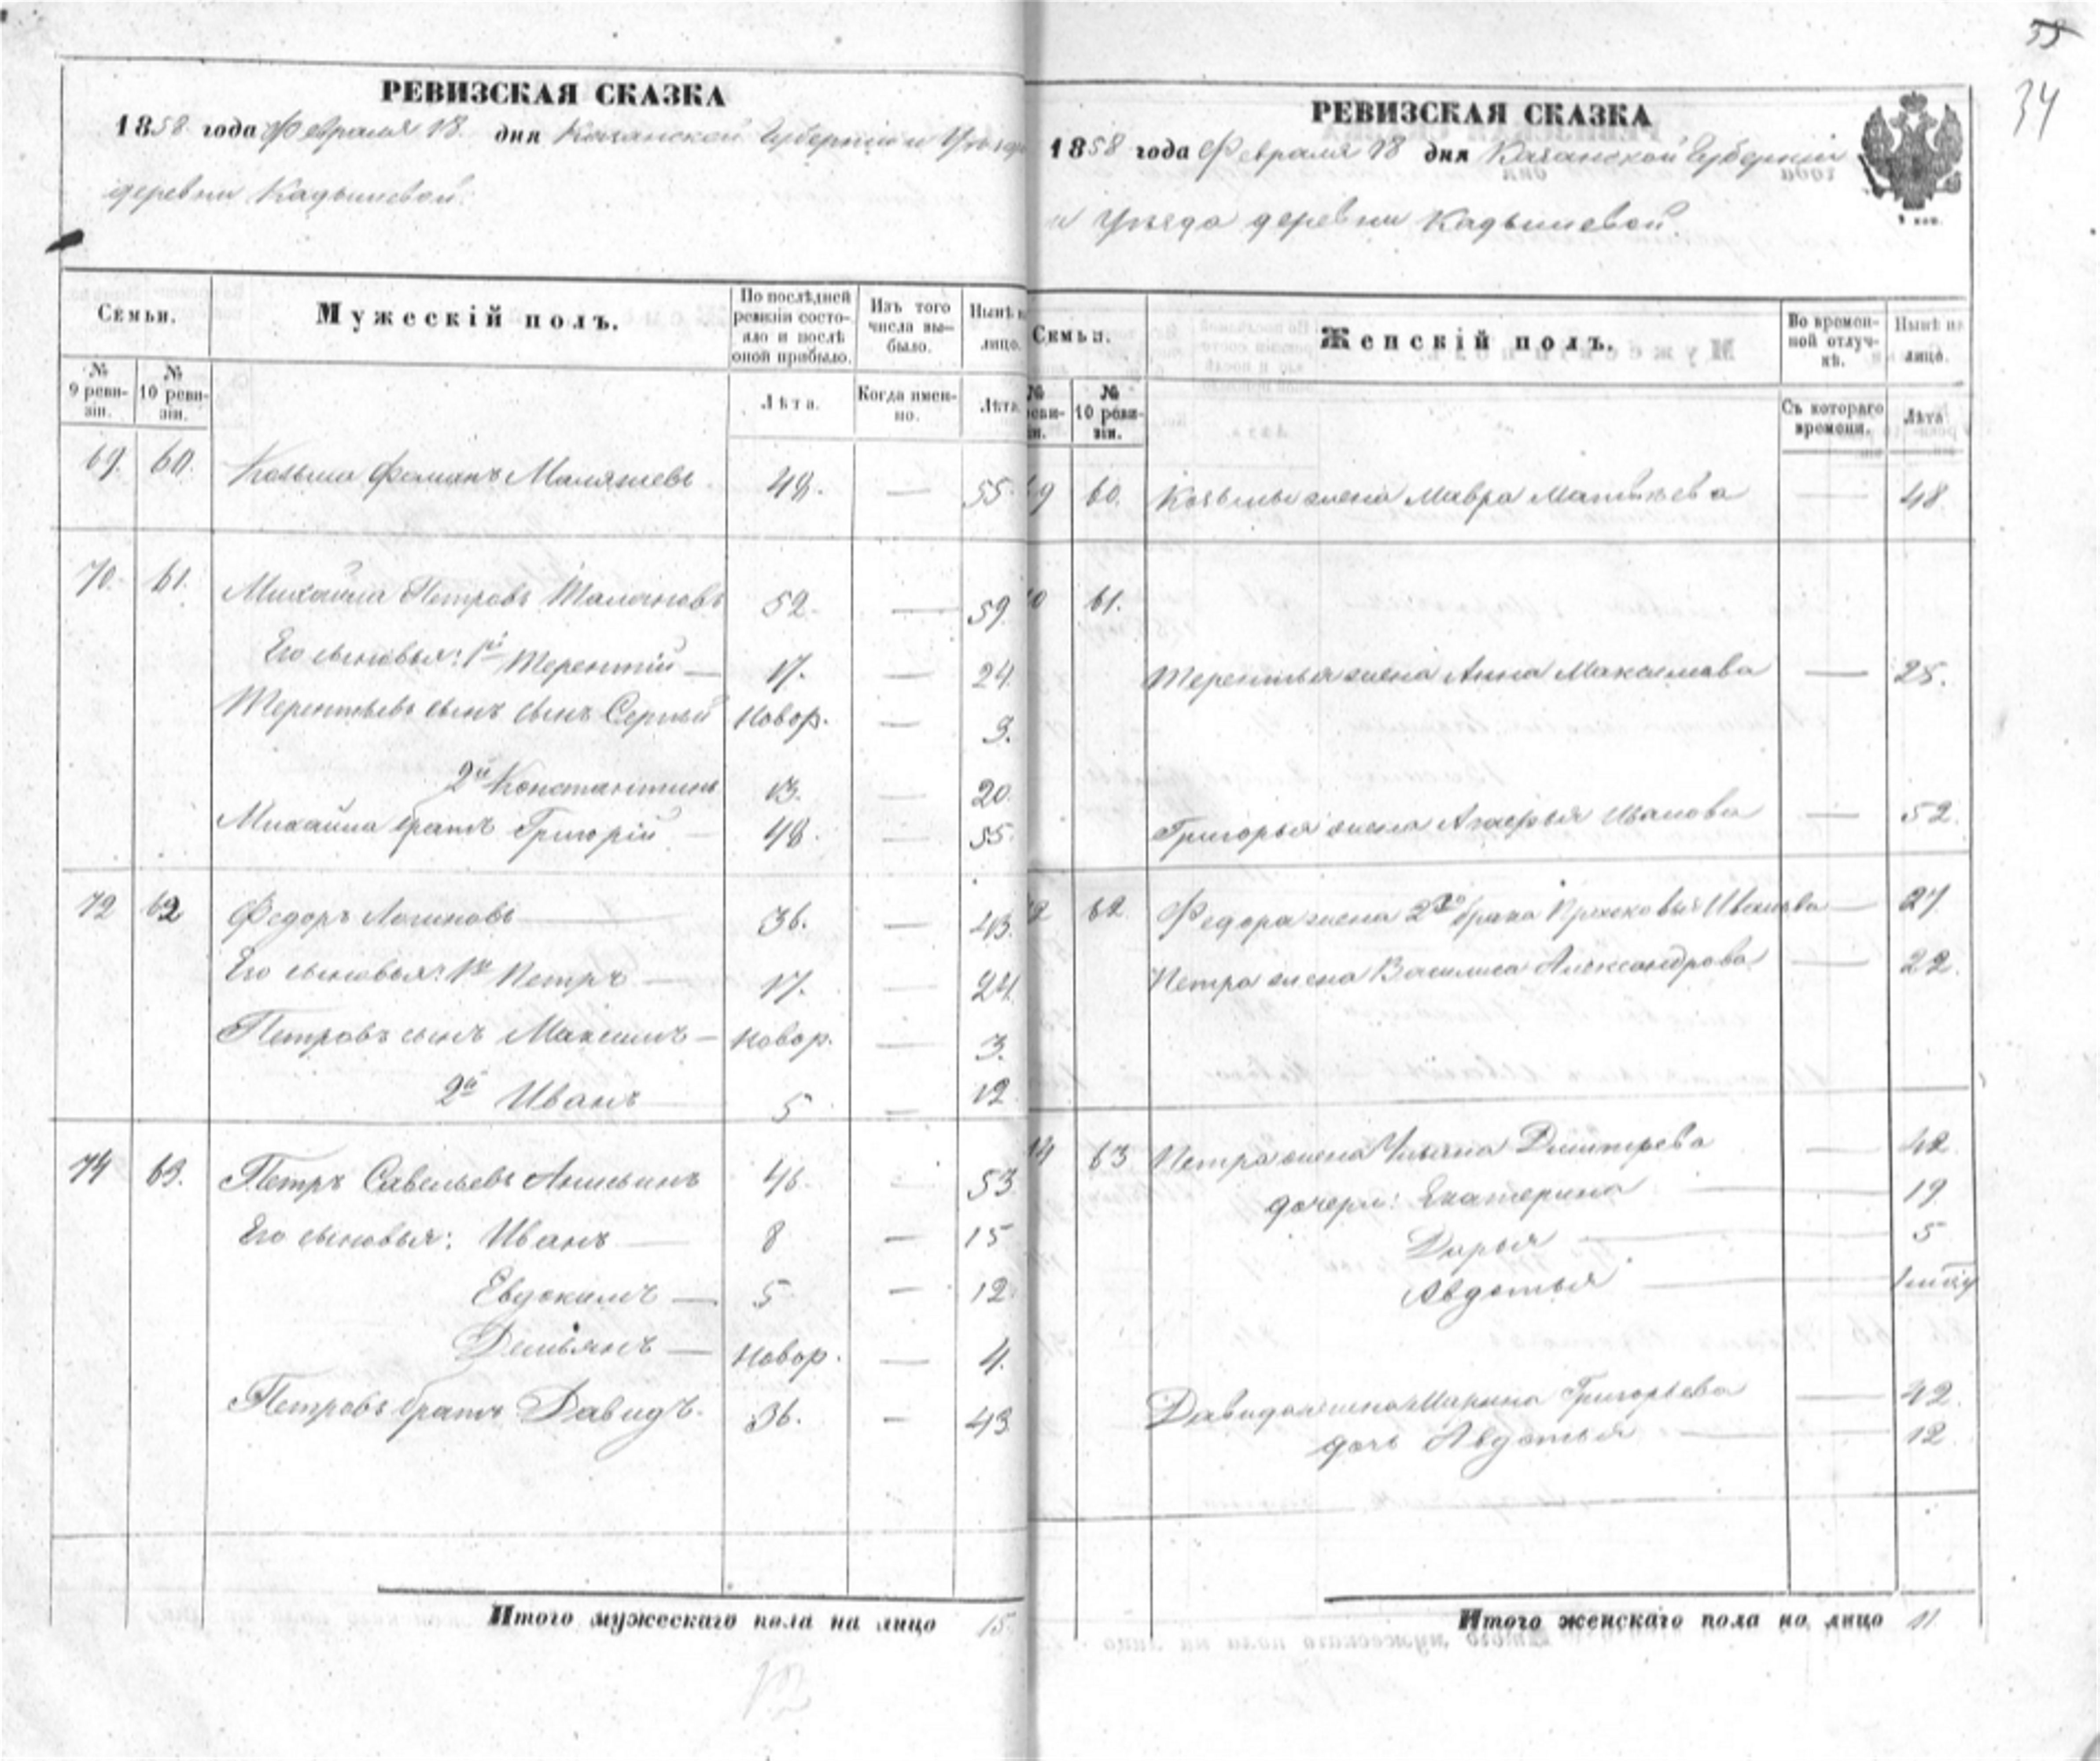 35
34
РЕВИЗСКАЯ СКАЗКА
1858 года Февраля 18 дня Казанской Губернии и Уѣзда
деревни Кадышевой.
Семьи.
Мужескій полъ.
По послѣдней ревизіи состояло и послѣ оной прибыло.
Изъ того числа выбыло.
Нынѣ на лицо.
№ 9 ревизіи.
№ 10 ревизіи.
Лѣта.
Когда именно.
Лѣта.
69. 60. Козьма Фоминъ 48. — 55.
70. 61. Михайла Петровъ 52. — 59.
Его сыновья: 1й Терентій — 17. — 24.
Терентьевъ сынъ Сергѣй Новор. — 3.
2й Константинъ 13. — 20.
Михайла братъ Григорій — 48. — 55.
72 62 Федоръ Логиновъ — 36. — 43.
Его сыновья: 1й Петръ — 17. — 24.
Петровъ сынъ Максимъ — Новор. — 3.
2й Иванъ 5 — 12
74 63. Петръ Савельевъ Анисьинъ 46. — 53
Его сыновья: Иванъ — 8 — 15
Евдокимъ — 5 — 12
Демьянъ — Новор. — 4.
Петровъ братъ Давидъ. 36. — 43
Итого мужескаго пола на лицо 15.
РЕВИЗСКАЯ СКАЗКА
1858 года Февраля 18 дня Казанской Губерніи
и Уѣзда деревни Кадышевой.
Семьи.
Женскій полъ.
Во временной отлучкѣ.
Нынѣ на лицо.
№ 10 ревизіи.
Съ котораго времени.
Лѣта
69 60. Козьмы жена Мавра Матвѣева — 48
70 61.
Терентья жена Анна Максимова — 25.
Григорья жена Агафья Иванова — 52.
72 62 Федора жена 2го брака Прасковья Иванова — 27
Петра жена Василиса Александрова — 22.
74 63 Петра жена Ульяна Дмитрева — 42.
дочери: Екатерина — 19
Дарья — 5
Авдотья —
Давида жена Марина Григорьева — 42.
дочь Авдотья — 12
Итого женскаго пола на лицо 11.